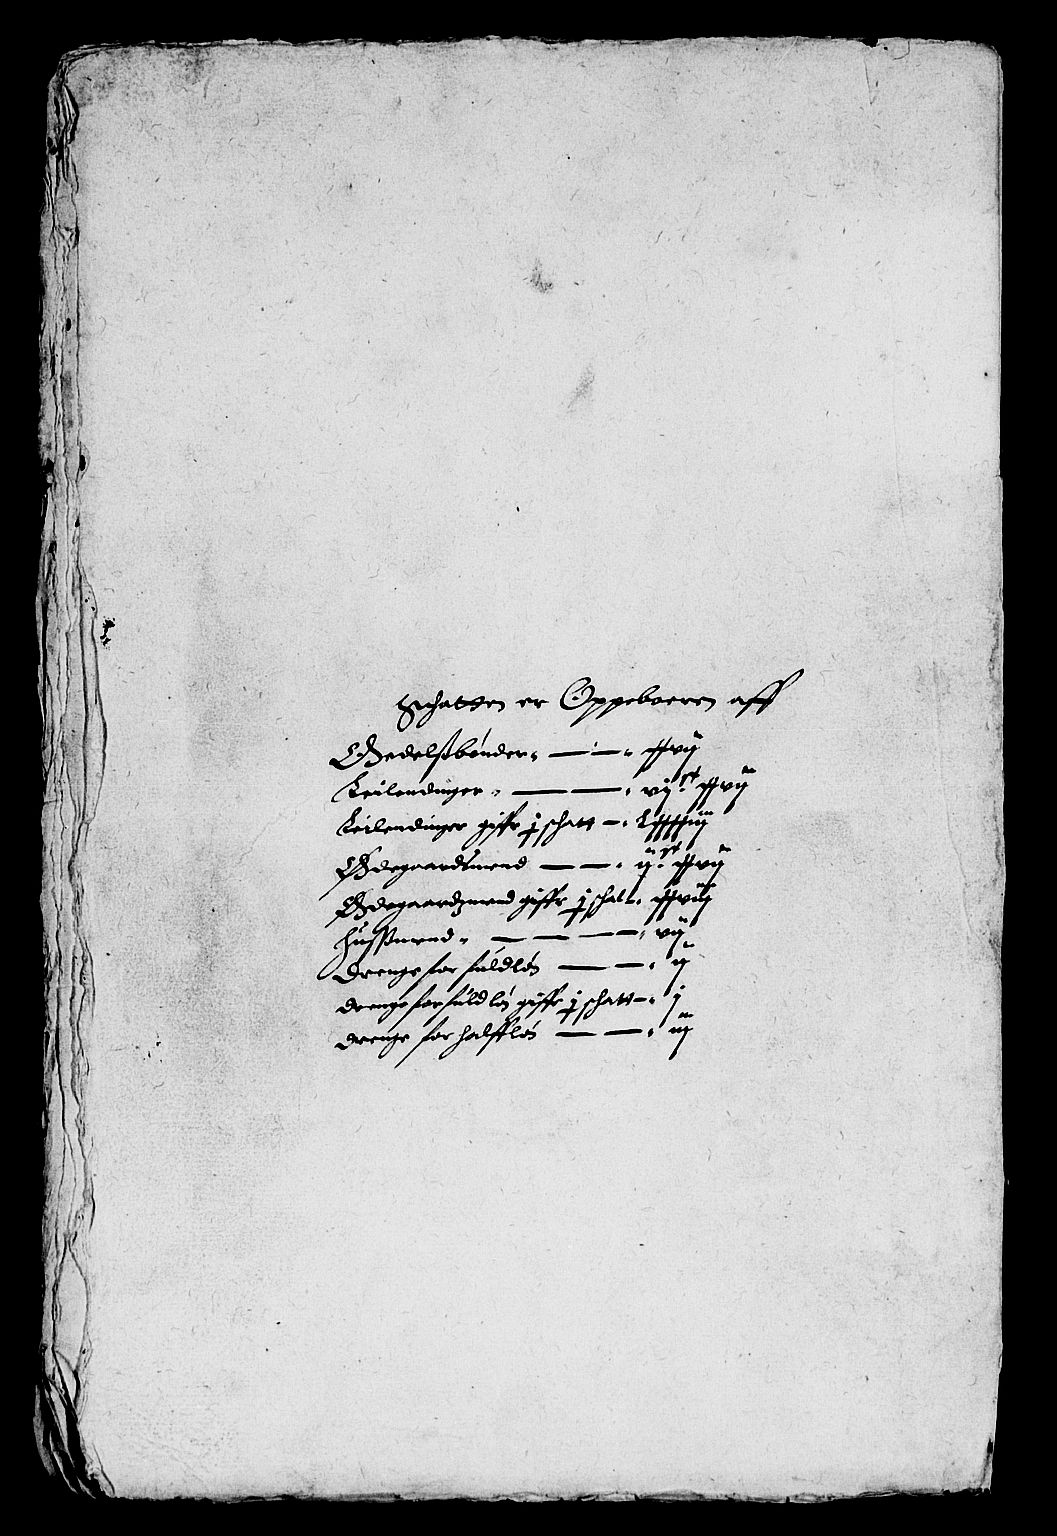 Schatten er Oppeboeren aff
Odelsbønder — — xxvij
Leilendinger — — vij^c xxvij
Leilendinger giffr j schatt — Lxxxxiiij
Ødegaardsmend — — ij^c xxvij
Ødegaardzmend giffr j schat — xxviij
Hussmend — — — vij
Drenge for fuldløn — — ij
drenge for fuldløn giffr j schatt — j
drenge for halffløn — — iij